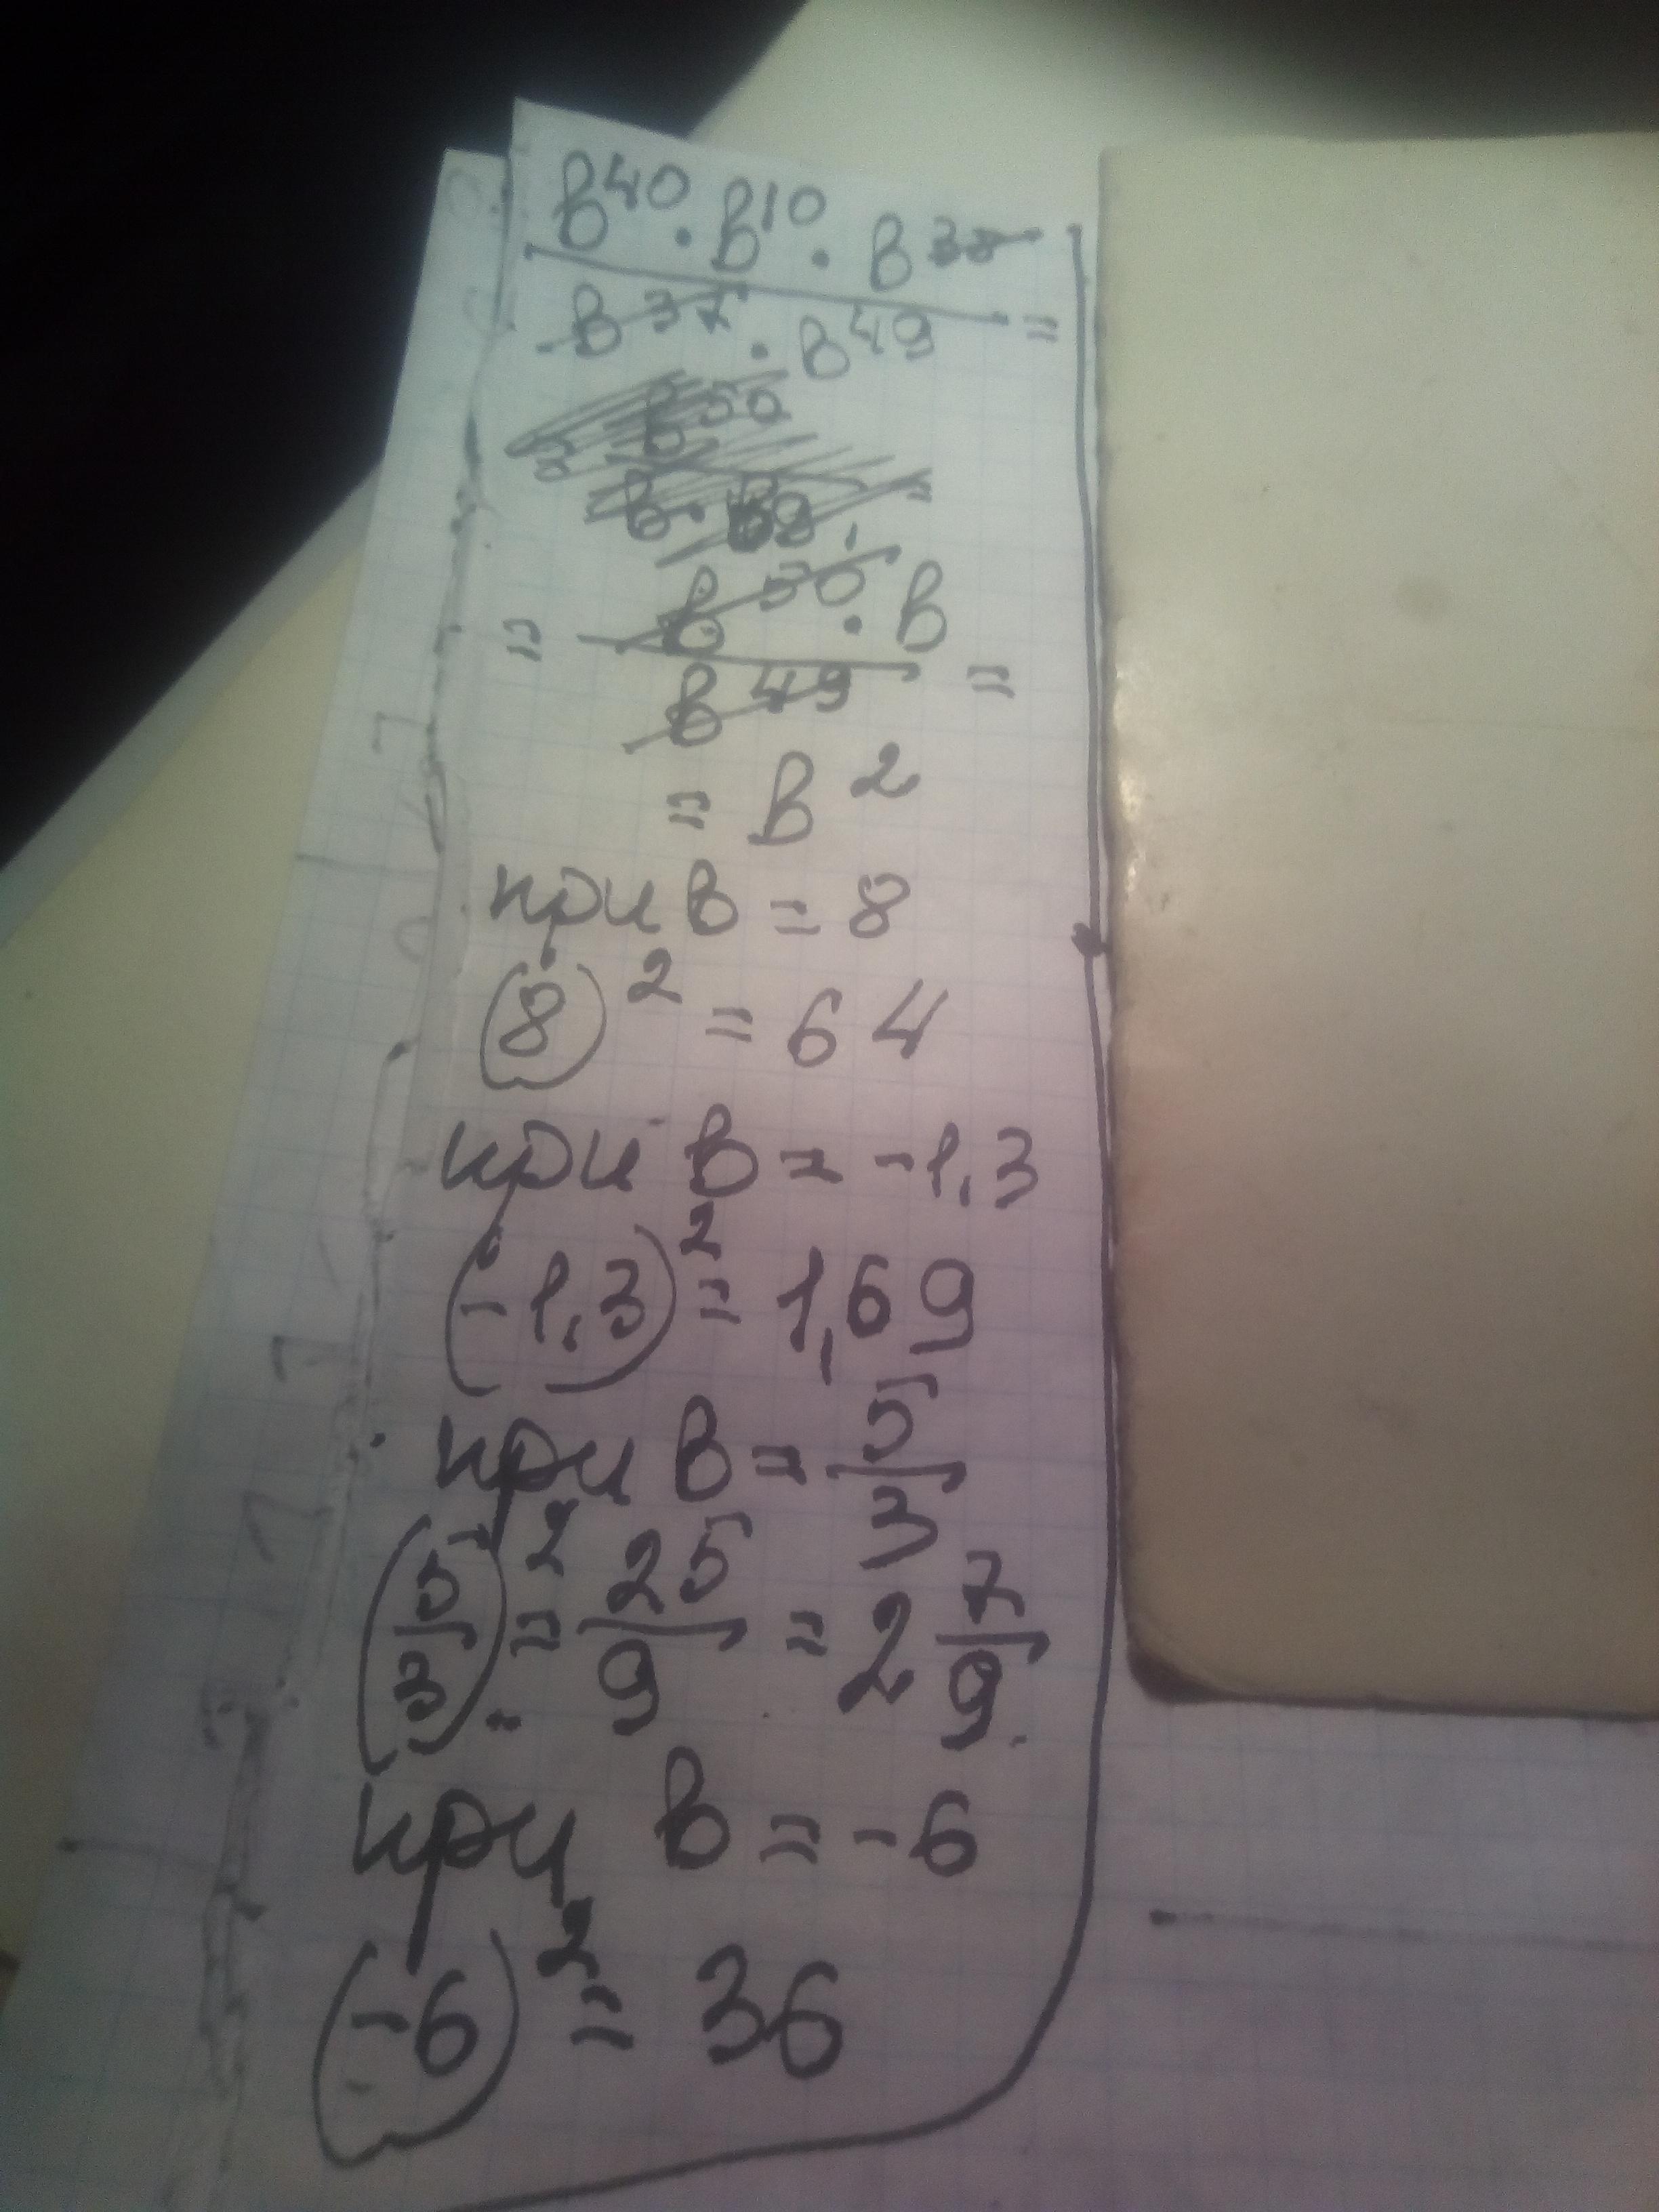 в⁴⁰ · в¹⁰ · в³⁸
в³⁷ · в⁴⁹ =
= в⁵⁰ · в
в⁴⁹ =
= в²
при в = 8
(8)² = 64
при в = -1,3
(-1,3)² = 1,69
при в = 5/3
(5/3)² = 25/9 = 2 7/9
при в = -6
(-6)² = 36